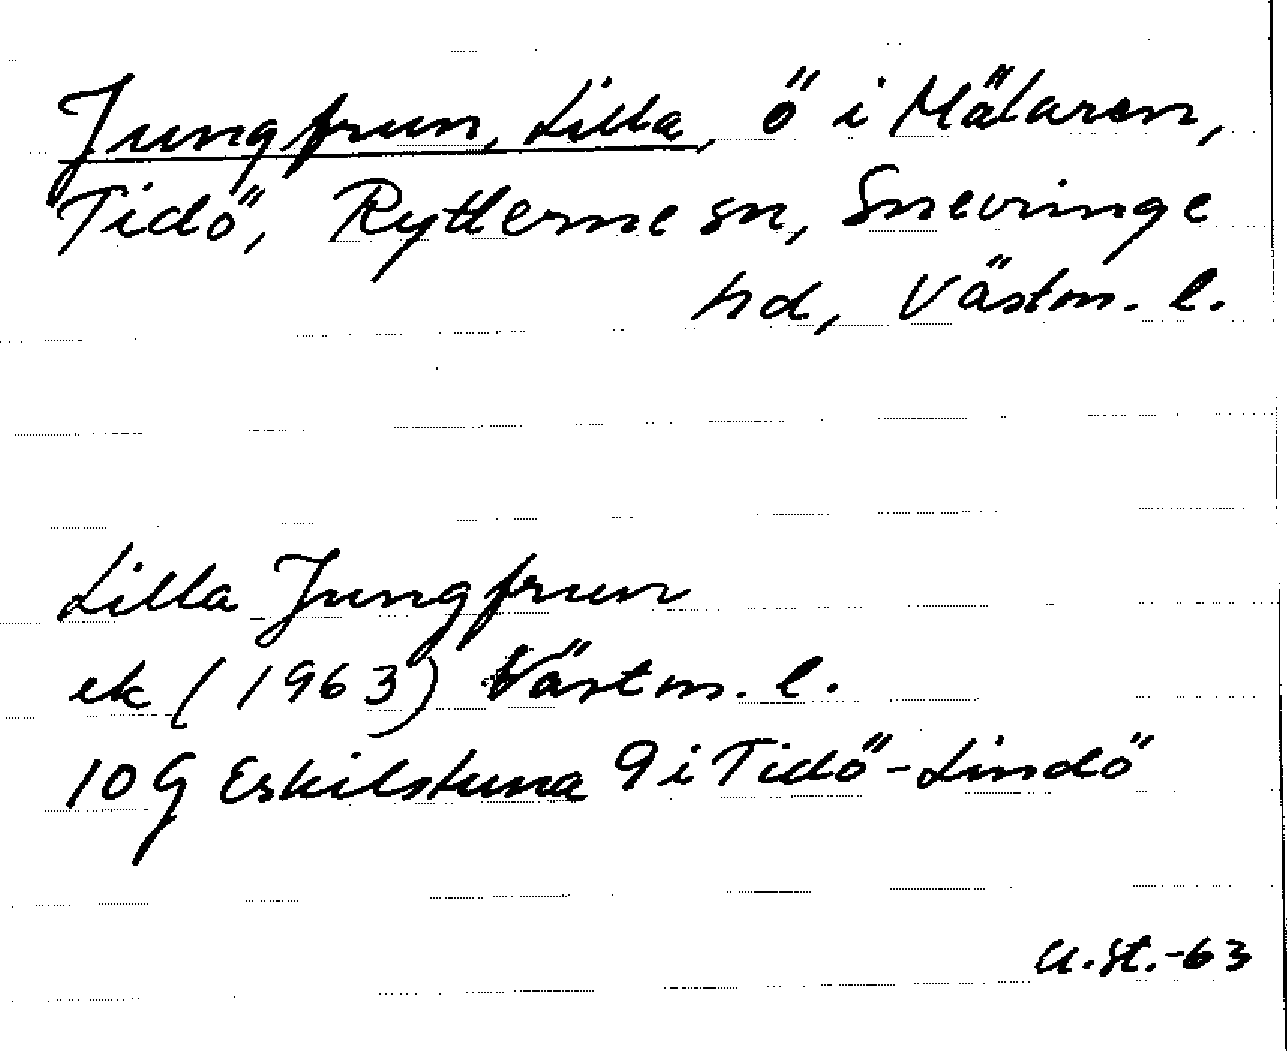 Jungfrun, Lilla, ö i Mälaren,
Tidö, Rytterne sn, Snevringe
hd, Västm. l.
Lilla Jungfrun
ek (1963) Västm. l.
10 G Eskilstuna 9 i Tidö-Lindö
U.St.-63